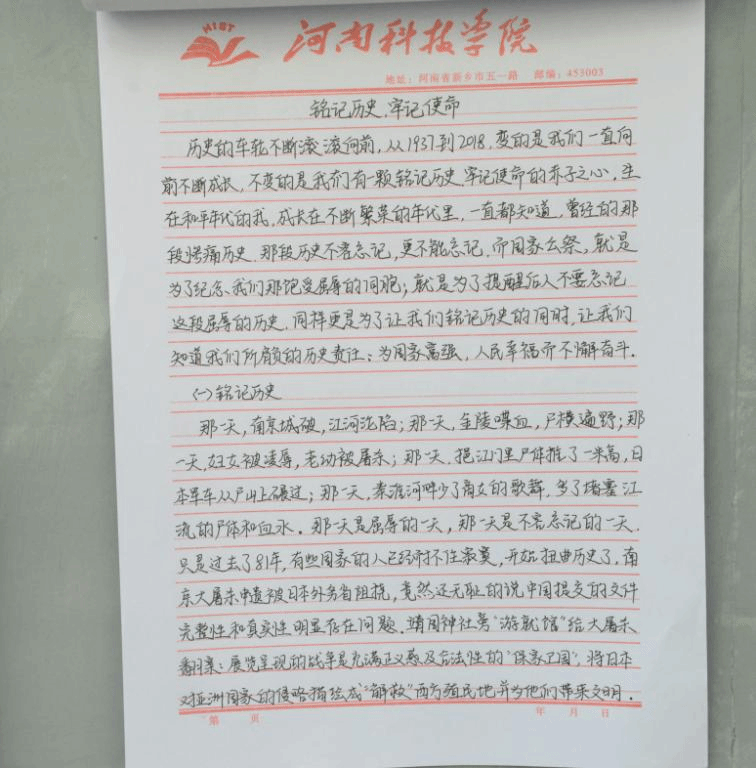 HIST
河南科技学院
地址：河南省新乡市五一路 邮编：453003
铭记历史，牢记使命
历史的车轮不断滚滚向前，从1937到2018，变的是我们一直向
前不断成长，不变的是我们有一颗铭记历史，牢记使命的赤子之心。生
在和平年代的我，成长在不断繁荣的年代里，一直都知道，曾经的那
段惨痛历史，那段历史不容忘记，更不能忘记。而国家公祭，就是
为了纪念我们那饱受屈辱的同胞；就是为了提醒后人不要忘记
这段屈辱的历史，同样更是为了让我们铭记历史的同时，让我们
知道我们所肩负的历史责任：为国家富强，人民幸福而不懈奋斗。
（一）铭记历史
那一天，南京城破，江河沦陷；那一天，金陵喋血，尸横遍野；那
一天，妇女被凌辱，老幼被屠杀；那一天，挹江门里尸体堆了一米高，日
本军车从尸山上碾过；那一天，秦淮河畔少了商女的歌舞，多了堵塞江
流的尸体和血水。那一天是屈辱的一天，那一天是不容忘记的一天。
只是过去了81年，有些国家的人已经耐不住寂寞，开始扭曲历史了。南
京大屠杀申遗被日本外务省阻挠，竟然还无耻的说中国提交的文件
完整性和真实性明显存在问题。靖国神社旁“游就馆”给大屠杀
翻案：展览呈现的战争是充满正义感及合法性的“保家卫国”，将日本
对亚洲国家的侵略描绘成“解救”西方殖民地并为他们带来文明。
第 页 年 月 日